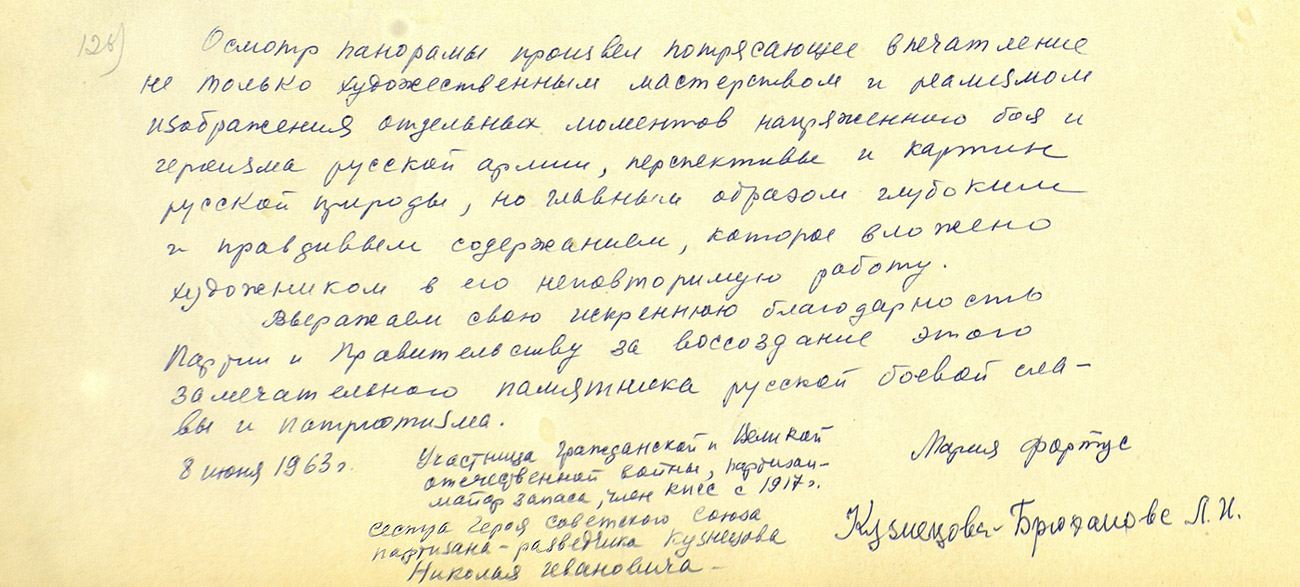 126)
Осмотр панорамы произвел потрясающее впечатление
не только художественным мастерством и реализмом
изображения отдельных моментов напряженного боя и
героизма русской армии, перспективы и картин
русской природы, но главным образом глубоким
и правдивым содержанием, которое вложено
художником в его неповторимую работу.
Выражаем свою искреннюю благодарность
Партии и Правительству за воссоздание этого
замечательного памятника русской боевой сла-
вы и патриотизма.
8 июня 1963 г.
Участница Гражданской и Великой
отечественной войны, партизан-
майор запаса, член КПСС с 1917 г.
Мария Фортус
сестра Героя Советского Союза
партизана-разведчика Кузнецова
Николая Ивановича -
Кузнецова-Брюханова Л.И.